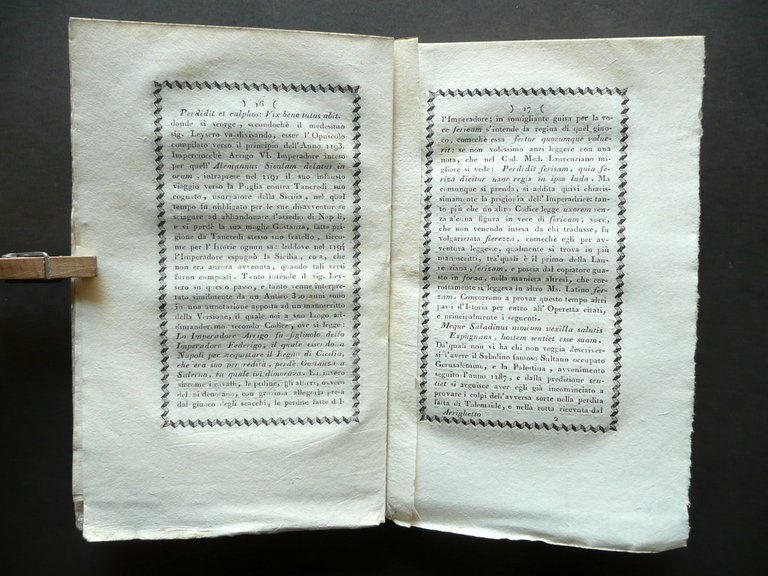 ) 16 (
Perdidit et calphos: Vix bene tutus abit.
donde si scorge, secondochè il medesimo
sig. Leysero va divisando, esser l'Opuscolo
compilato verso il principio dell'Anno 1193.
Imperciocchè Arrigo VI. Imperadore inteso
per quell'Alemannus Siculam delatus in
oram, intraprese nel 1191 il suo infausto
viaggio verso la Puglia contra Tancredi suo
cognato, usurpatore della Sicilia, nel qual
tempo fu obbligato per le sue disavventure se
sciagure ad abbandonare l'assedio di Napoli,
e si perdè la sua moglie Gostanza, fatta pri-
gione da Tancredi stesso suo fratello, sicco-
me per l'Istorie ognun sa: laddove nel 1194
l'Imperadore espugnò la Sicilia, cosa, che
non era ancora avvenuta, quando tali versi
furon composti. Tanto intende il sig. Ley-
sero su questo passo, e tanto venne interpe-
trato similmente da un Antico 300 anni sono
in una annotazione apposta ad un manoscritto
della Versione, il quale noi a suo luogo ad-
dimanderemo secondo Codice, ove si legge:
Lo Imperadore Arrigo fu figliuolo dello
Imperadore Federigo, il quale essendo a
Napoli per acquistare il Regno di Cicilia,
che era suo per redità, perdè Gostanza a
Salerno, la quale ivi dimorava. Ed invero
siccome i cavalli, le pedine, gli alfieri, ovvero
del ni denotano, con graziosa allegoria presa
dal giuoco degli scacchi, le perdite fatte dal-
) 17 (
l'Imperadore; in somigliante guisa per la vo-
ce fericam s'intende la regina di quel gino-
co, comechè essa fertur quocumque volue-
rit: se non volessimo anzi leggere con una
nota, che nel Cod. Med. Laurenziano
migliore si vede: Perdidit ferisam, quia fe-
riza dicitur uxor regis in ipso ludo. Ma
comunque si prenda, si addita quivi chiaris-
simamente la prigionia dell'Imperadrice: tan-
to più che un altro Codice legge uxorem sen-
za alcuna figura in vece di fericam; voce,
che non venendo intesa da chi tradusse, fu
volgarizzata fierezza, comechè egli per av-
ventura leggesse, qualmente si trova in più
manoscritti, tra' quali è il primo della Lau-
renziana, ferizam, e poscia dal copiatore gua-
sto in forza, nella maniera altresì, che cor-
rottamente si leggeva in altro Ms. Latino fer-
zam. Concorrono a provar questo tempo altri
passi d'Istoria per entro all'Operetta citati, e
principalmente i seguenti.
Meque Saladinus nimium vexilla salutis
Expugnans, hostem sentiet esse suum.
Da'quali non vi ha chi non veggia descriver-
si l'avere il Saladino famoso Sultano occupata
Gerusalemme, e la Palestina, avvenimento
seguito l'anno 1187. e dalla predizione sen-
tiet si arguisce aver egli già incominciato a
provare i colpi dell'avversa sorte nella perdita
fatta di Tolemaide, e nella rotta ricevuta dal
Arrighetto 2